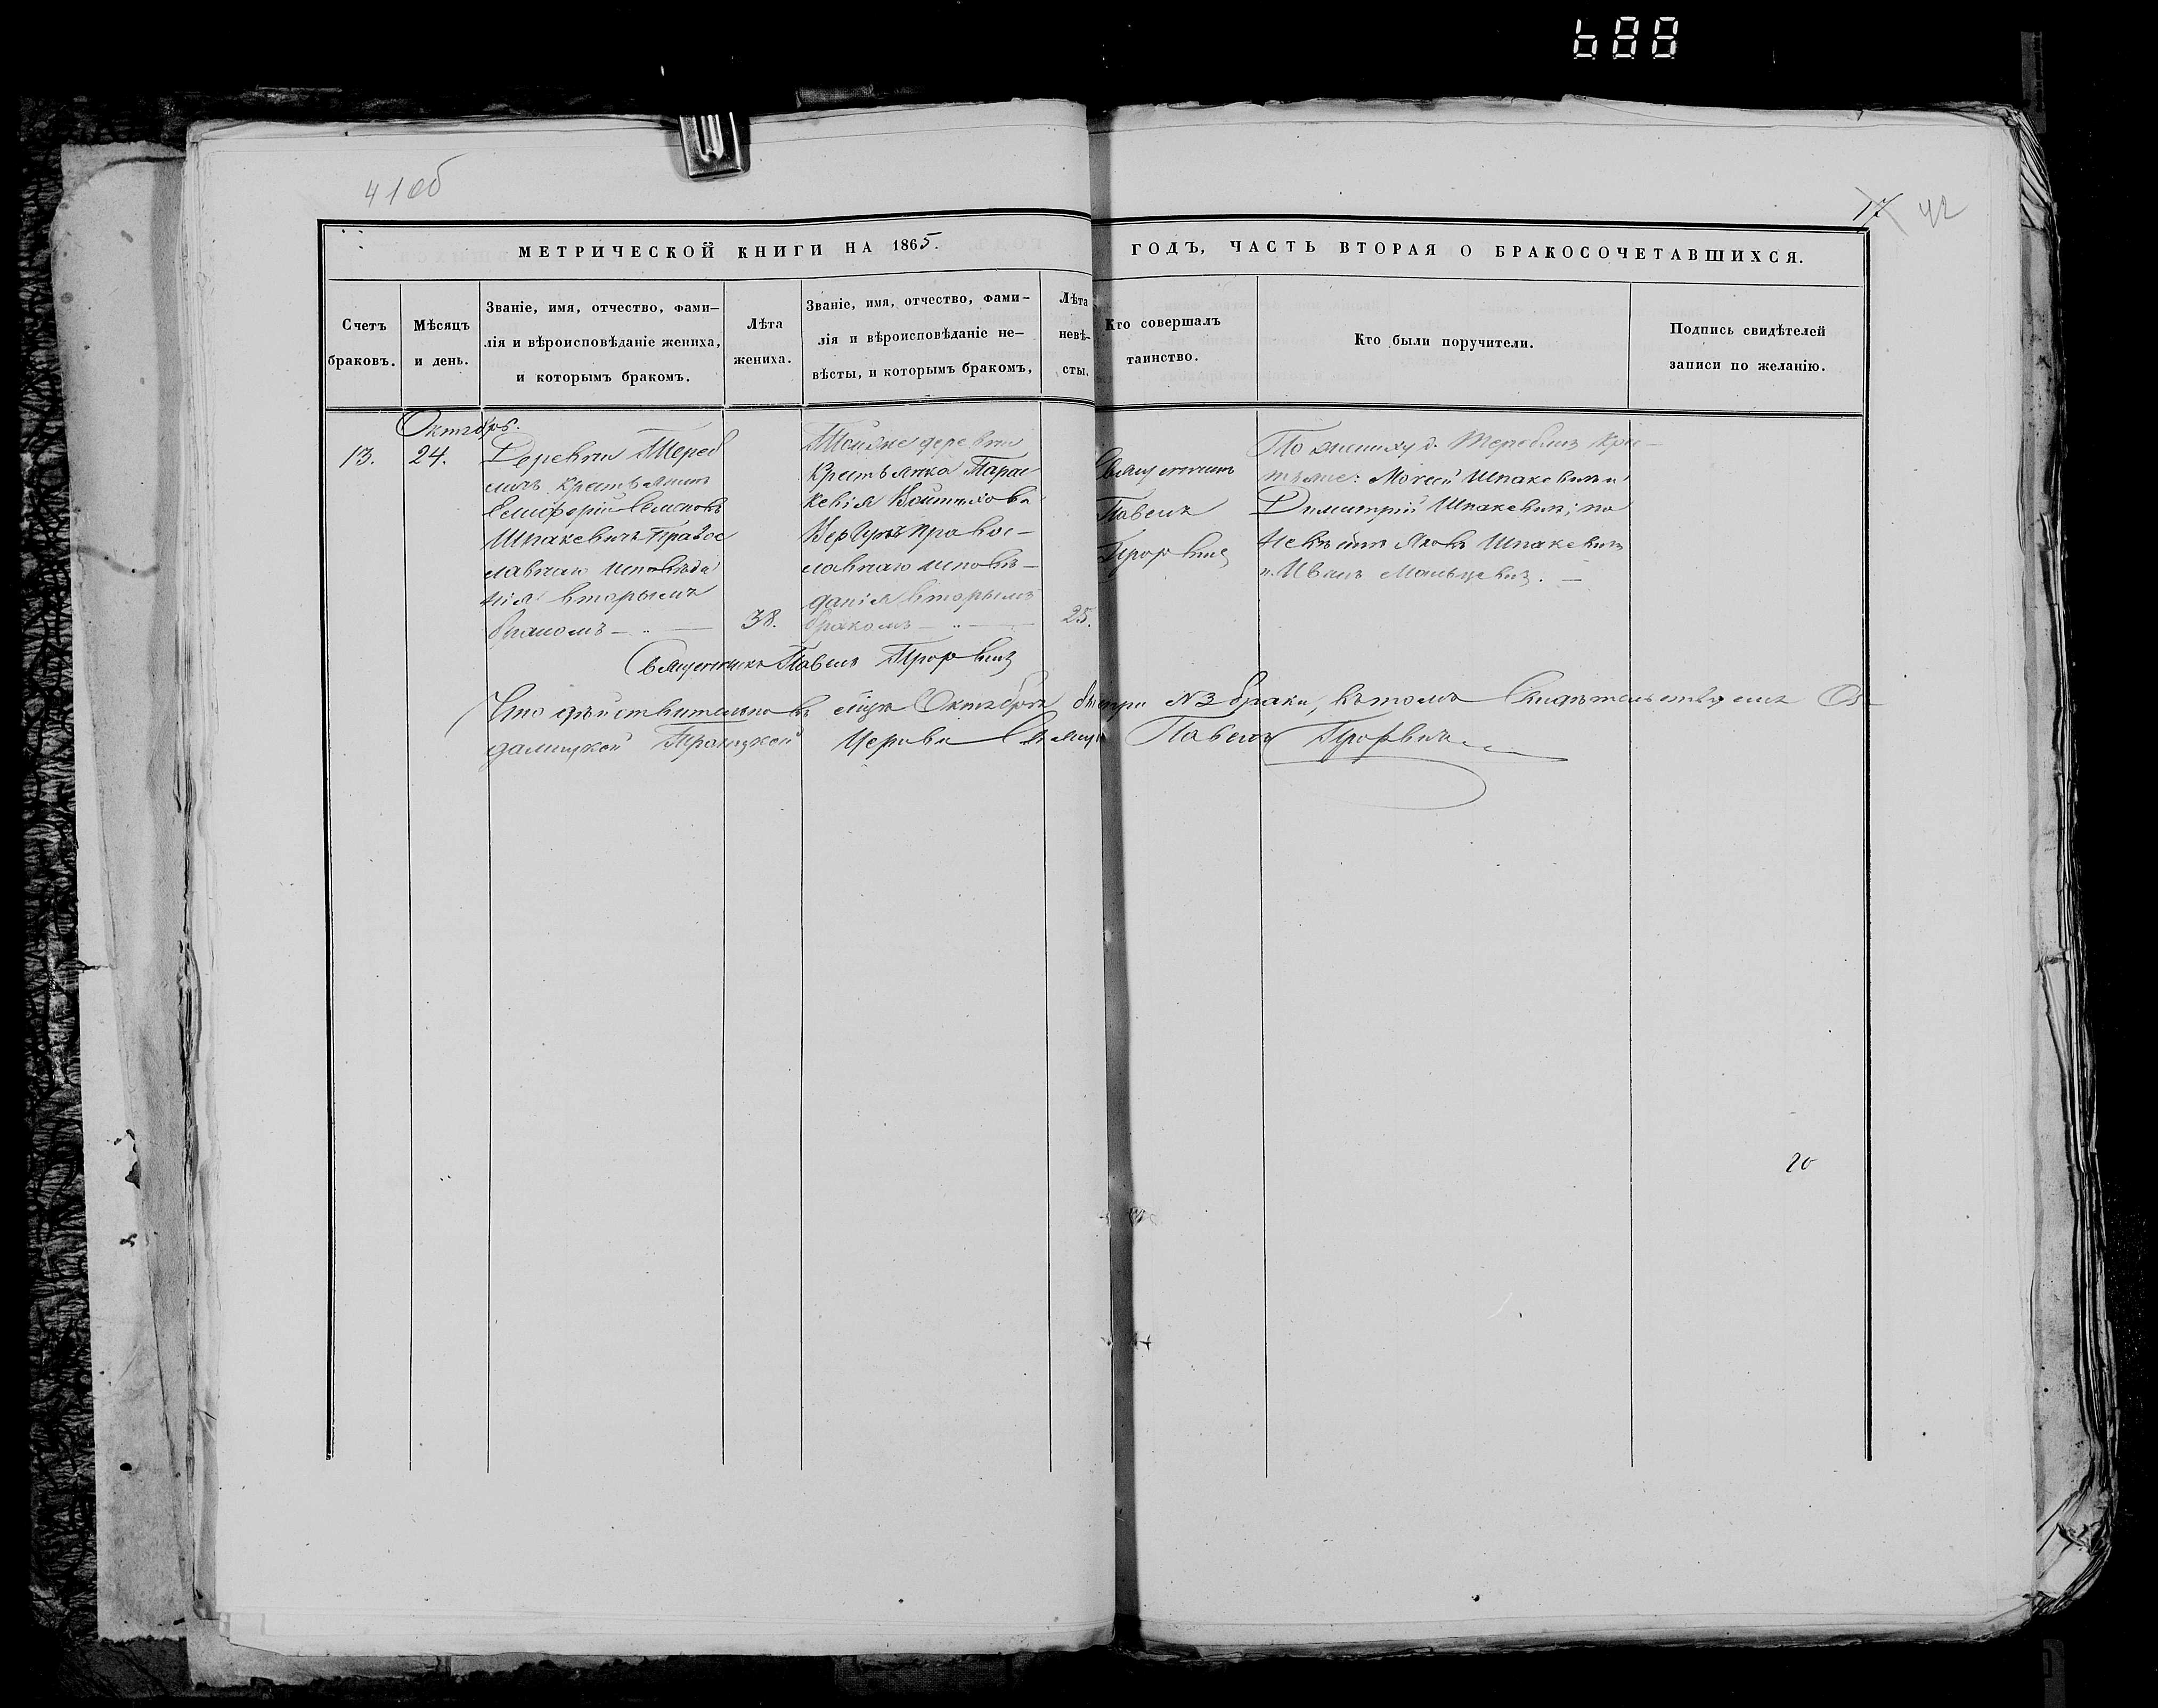 688
41 об
17 42
МЕТРИЧЕСКОЙ КНИГИ НА 1865.
ГОДЪ, ЧАСТЬ ВТОРАЯ О БРАКОСОЧЕТАВШИХСЯ.
Счетъ
браковъ.
Мѣсяцъ
и день.
Званіе, имя, отчество, фами-
лія и вѣроисповѣданіе жениха,
и которымъ бракомъ.
Лѣта
жениха.
Званіе, имя, отчество, фами-
лія и вѣроисповѣданіе не-
вѣсты, и которымъ бракомъ,
Лѣта
невѣ-
сты.
Кто совершалъ
таинство.
Кто были поручители.
Подпись свидѣтелей
записи по желанію.
Октябрь.
13.
24.
Деревни Тереб
личъ крестьянинъ
Шпакевичъ Правос
лавнаго исповѣда
нія вторымъ
бракомъ
38.
Тойже деревни
крестьянка Парас
кевія
правос-
лавнаго исповѣ-
данія вторымъ
бракомъ
25.
Священникъ
Павелъ
По жениху д. Тереблич кре-
стьяне: Моисей Шпакевичъ и
Димитрій Шпакевич; по
невѣстѣ Яковъ Шпакевич
и Иванъ Мальцевич.
Священникъ Павелъ
Что дѣйствительно въ мцѣ Октябрѣ три № 3 браки, въ томъ свидѣтельствуемъ Оз-
далицкой Троицкой церкви Священ Павелъ
20